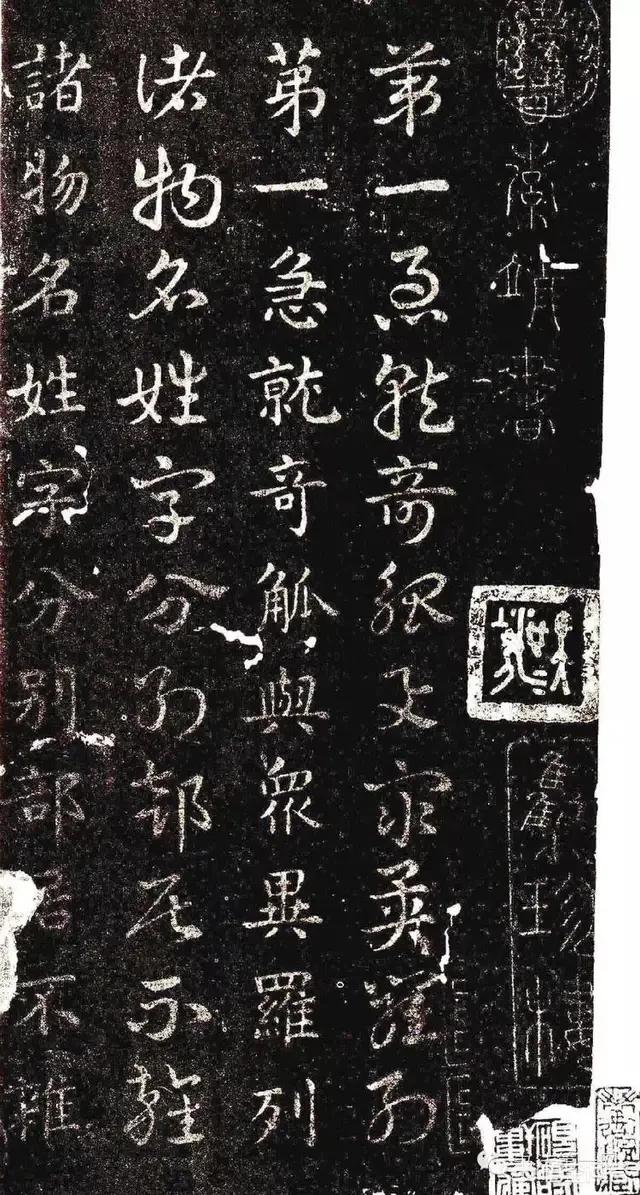 索靖書
第一急就奇觚與眾異羅列
第一急就奇觚與眾異羅列
諸物名姓字分別部居不雜
諸物名姓字分別部居不雜